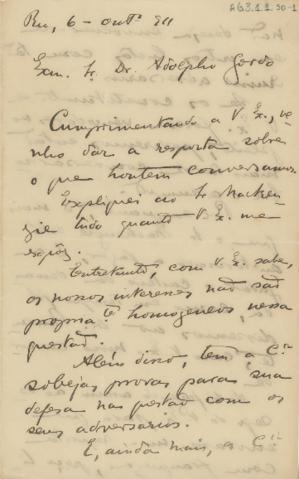 AG3.1.1.30-1
Rio, 6 - outº 911
Exm. Sr. Dr. Adolpho Gordo
Cumprimentando a V. Ex., ve-
nho dar a resposta sobre
o que hontem conversamos.
Expliquei ao Sr Macken-
zie tudo quanto V. Ex. me
expôz.
Entretanto, com V. Ex. sabe,
os nossos interesses não são
propria te homogeneos, nessa
questão.
Além disso, tem a C.ia
sobejas provas para sua
defesa na questão com os
seus adversarios.
E, ainda mais, a C.ia